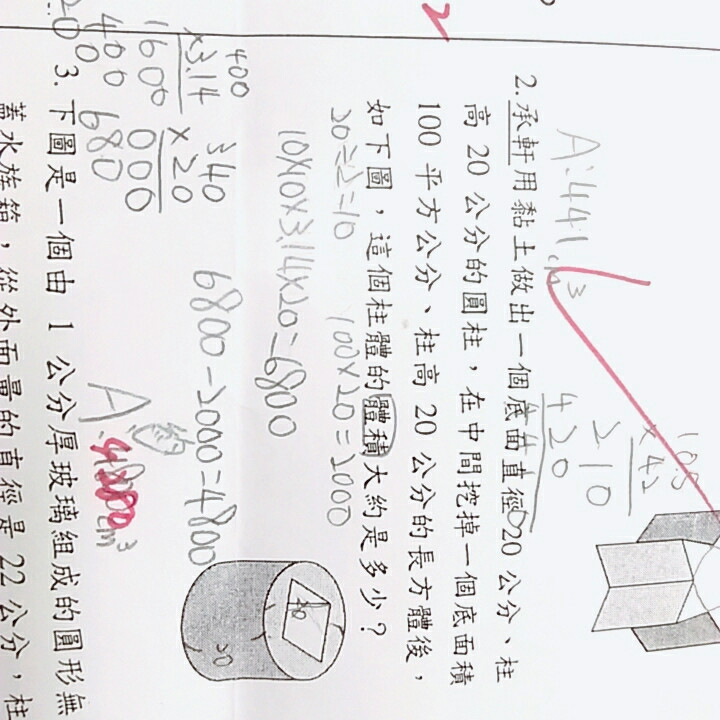 A:441
105
×42
210
420
2.承軒用黏土做出一個底面直徑20公分、柱
高20公分的圓柱，在中間挖掉一個底面積
100平方公分、柱高20公分的長方體後，
如下圖，這個柱體的體積大約是多少？
20÷2=10
100×20=2000
10×10×3.14×20=6800
6800-2000=4800
A:
cm³
20
20
400
×3.14
1600
400
340
×20
000
680
3.下圖是一個由1公分厚玻璃組成的圓形無
蓋水族箱，從外面量的直徑是22公分，柱